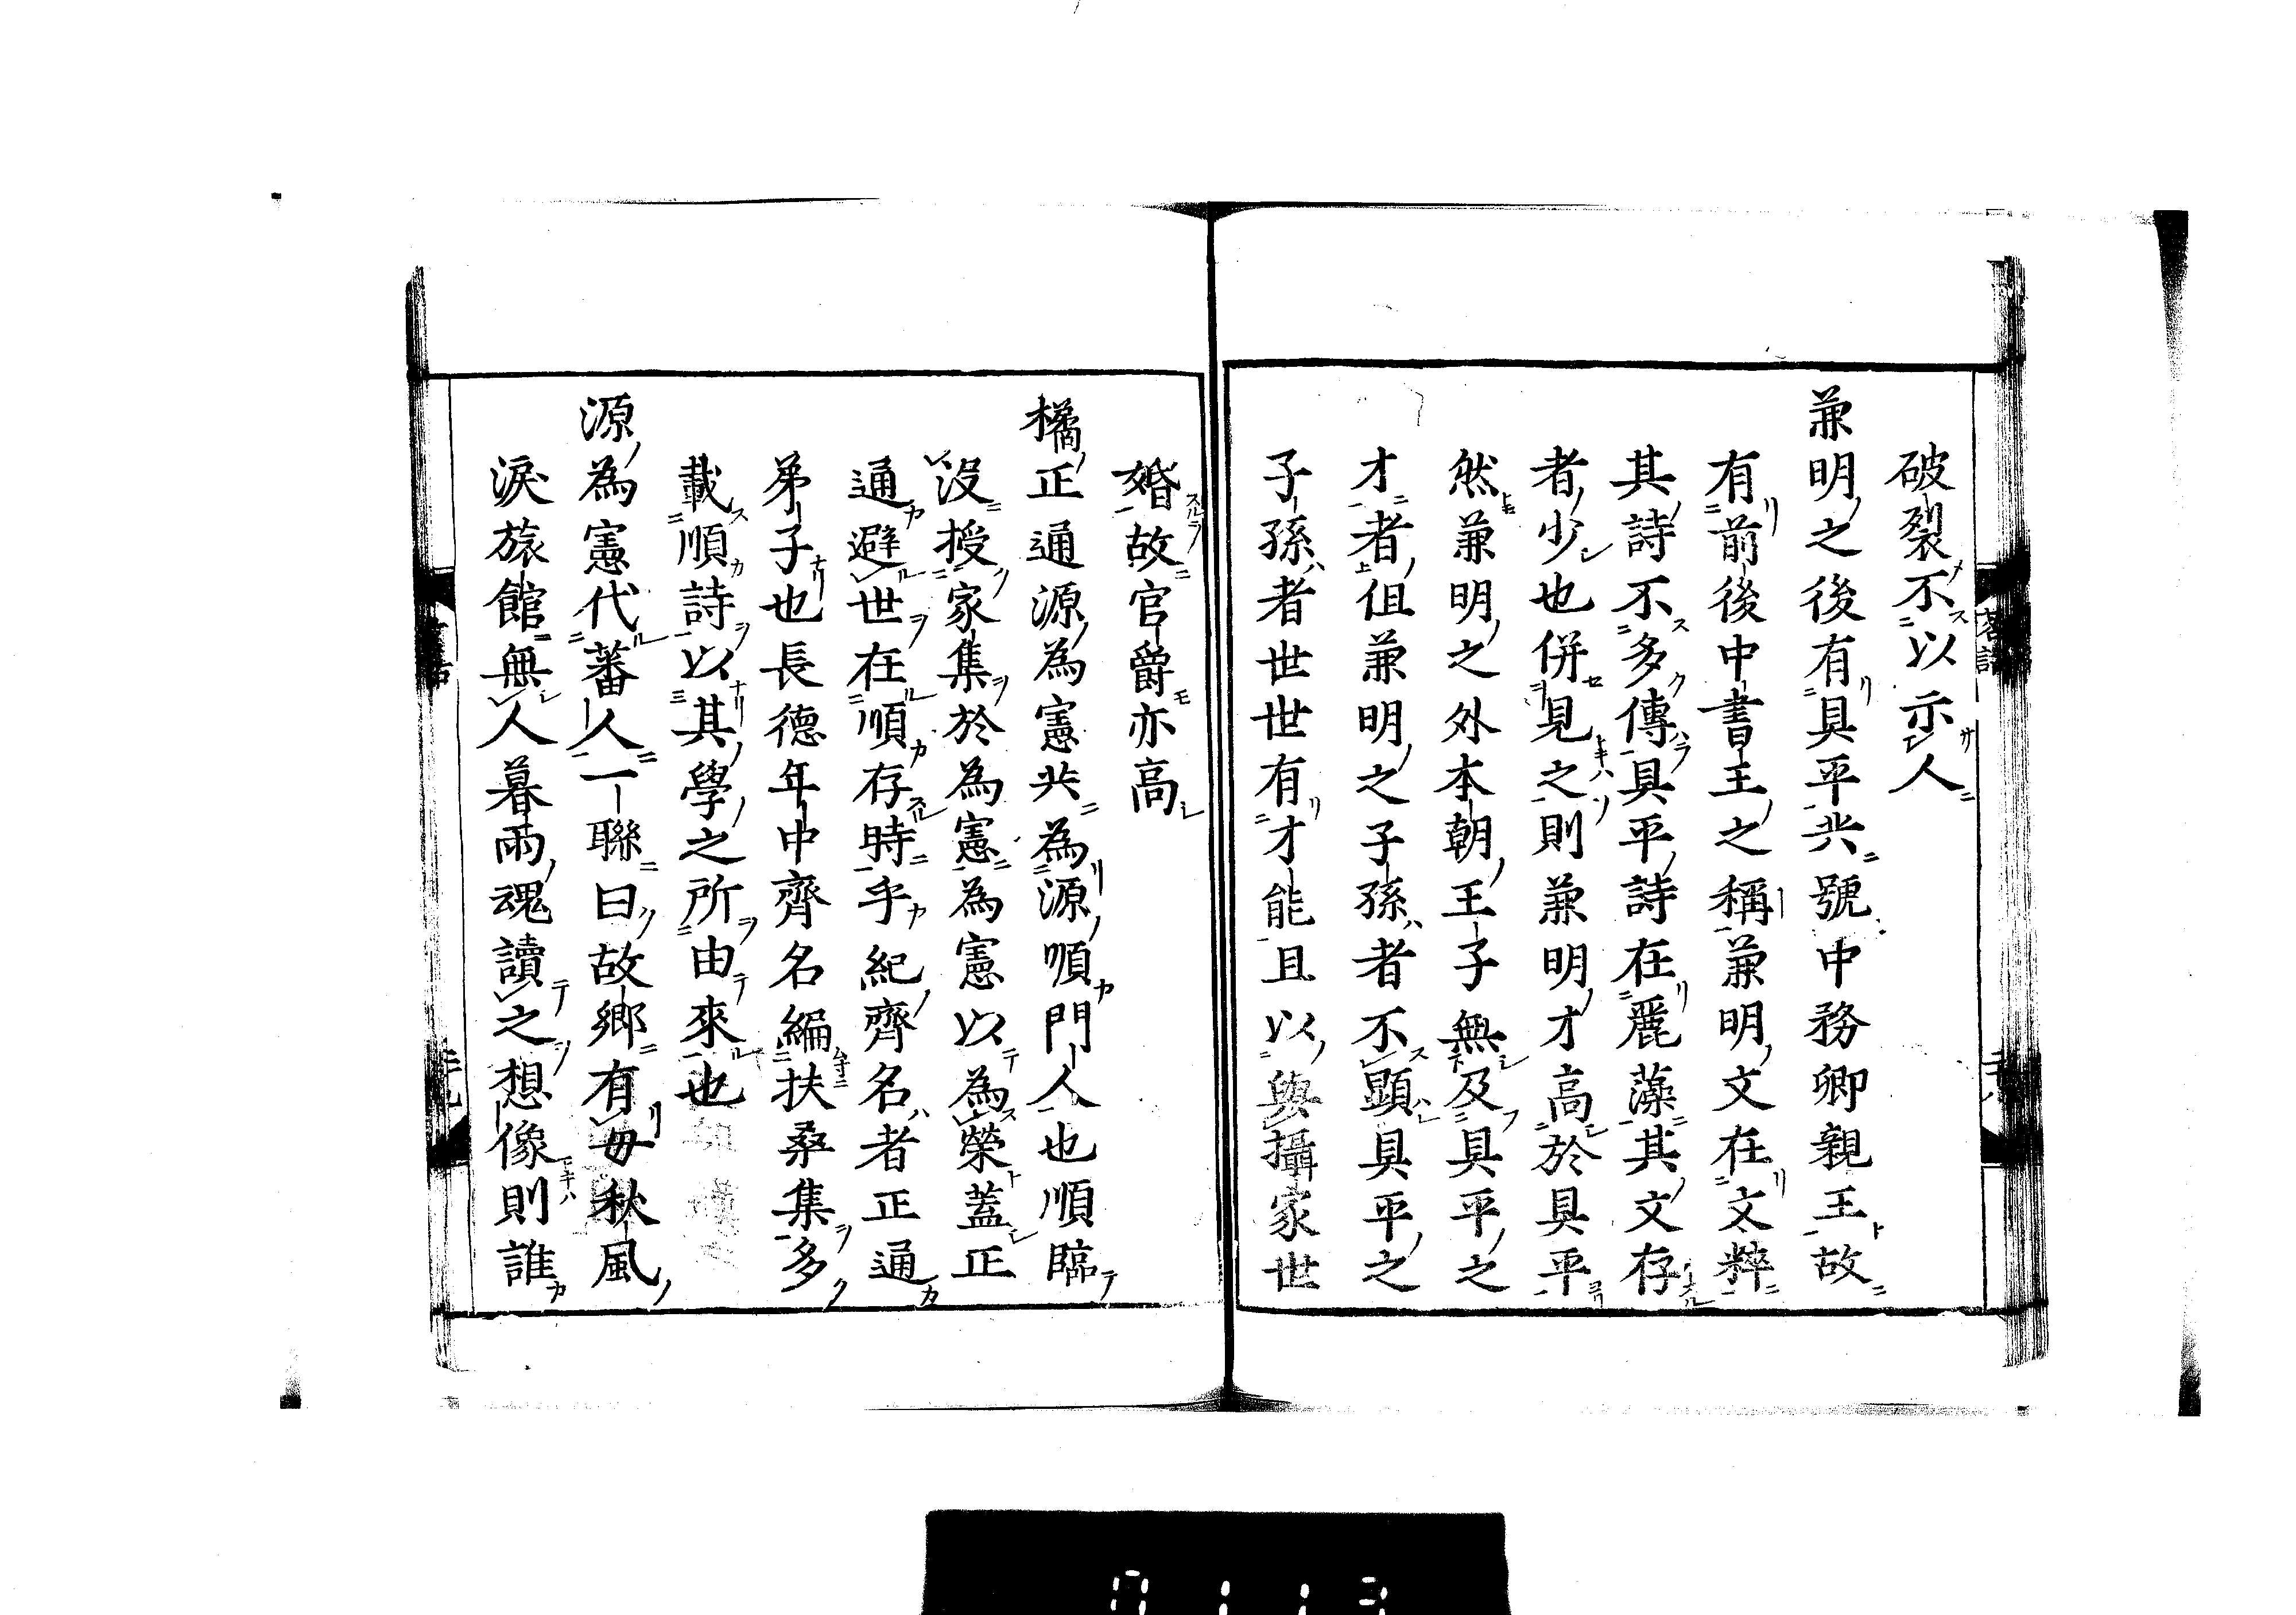 破裂不以示人
兼明之後有具平共號中務卿親王故
有前後中書王之稱兼明文在文粹
其詩不多傳具平詩在麗藻其文存
者少也併見之則兼明才高於具平
然兼明之外本朝王子無及具平之
才者但兼明之子孫者不顯具平之
子孫者世世有才能且以與攝家世
婚故官爵亦高
橘正通源為憲共為源順門人也順臨
沒授家集於為憲為憲以為榮蓋正
通避世在順存時乎紀齊名者正通
弟子也長德年中齊名編扶桑集多
載順詩以其學之所由來也
源為憲代蕃人一聯曰故鄉有母秋風
淚旅館無人暮雨魂讀之想像則誰